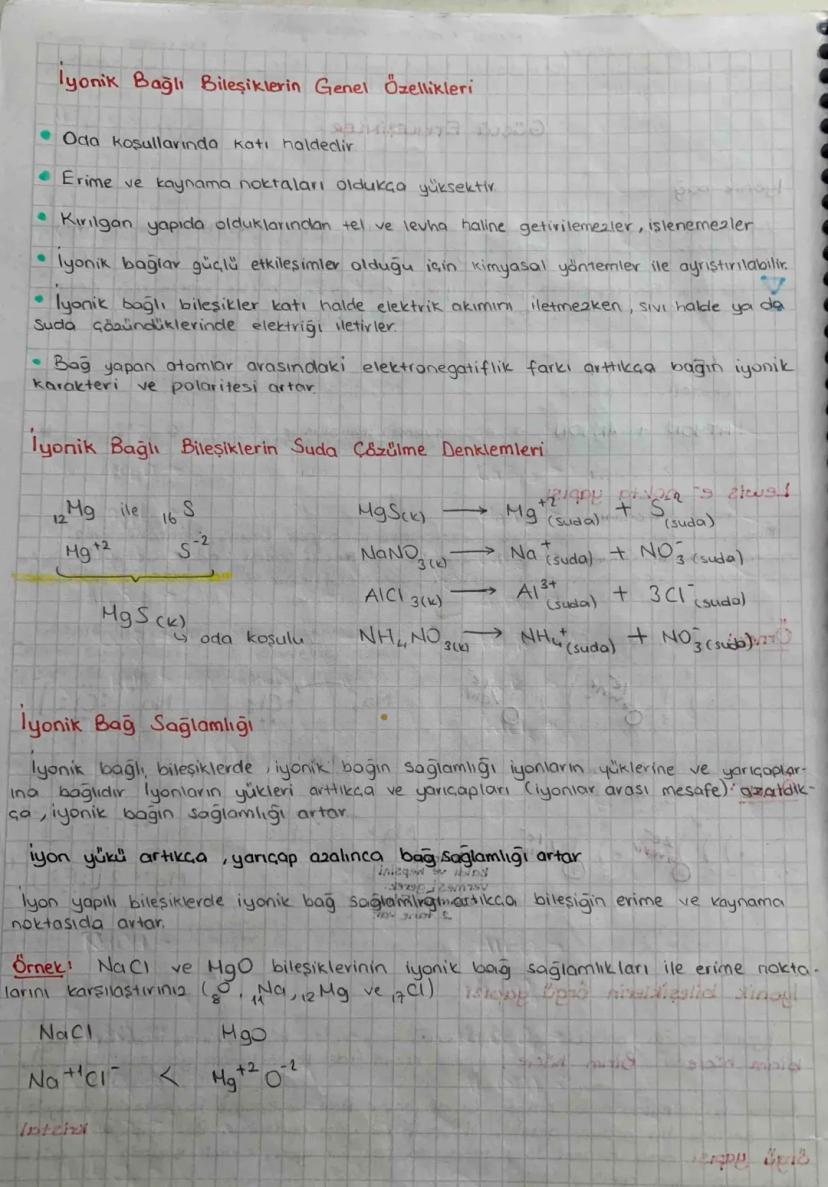 İyonik Bağlı Bileşiklerin Genel Özellikleri
• Oda koşullarında katı haldedir
• Erime ve kaynama noktaları oldukça yüksektir
• Kırılgan yapıda olduklarından tel ve levha haline getirilemezler, işlenemezler
• İyonik bağlar güçlü etkileşimler olduğu için kimyasal yöntemler ile ayrıştırılabilir.
• İyonik bağlı bileşikler katı halde elektrik akımını iletmezken, sıvı halde ya da
suda çözündüklerinde elektriği iletirler.
• Bağ yapan atomlar arasındaki elektronegatiflik farkı arttıkça bağın iyonik
karakteri ve polaritesi artar.
İyonik Bağlı Bileşiklerin Suda Çözülme Denklemleri
₁₂Mg ile ₁₆S
Mg⁺² S⁻²
MgS(k)
↳ oda koşulu
MgS(k) → Mg⁺²(suda) + S⁻²(suda)
NaNO₃(k) → Na⁺(suda) + NO₃⁻(suda)
AlCl₃(k) → Al³⁺(suda) + 3Cl⁻(suda)
NH₄NO₃(k) → NH₄⁺(suda) + NO₃⁻(suda)
İyonik Bağ Sağlamlığı
İyonik bağlı bileşiklerde, iyonik bağın sağlamlığı iyonların yüklerine ve yarıçaplar-
ına bağlıdır İyonların yükleri arttıkça ve yarıçapları (iyonlar arası mesafe) azaldık-
ça, iyonik bağın sağlamlığı artar
iyon yükü artıkça, yarıçap azalınca bağ sağlamlığı artar
İyon yapılı bileşiklerde iyonik bağ artıkça bileşiğin erime ve kaynama
noktasıda artar.
Örnek: NaCl ve MgO bileşiklerinin iyonik bağ sağlamlıkları ile erime nokta-
larını karşılaştırınız (₈O, ₁₁Na, ₁₂Mg ve ₁₇Cl)
NaCl MgO
Na⁺¹Cl⁻ < Mg⁺²O⁻²